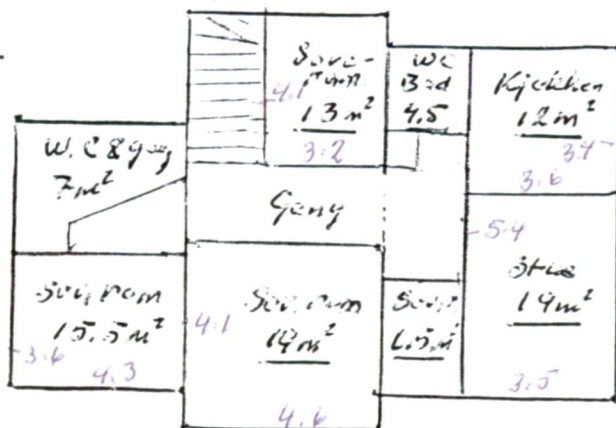 Sove-
rom
13 m²
4.1
3.2
WC
Bad
4.5
Kjøkken
12 m²
3.4
3.6
W.C & gang
7 m²
Gang
5.4
Stue
19 m²
3.5
Sov. rom
15.5 m²
3.6
4.3
Sov. rom
4.1
4.6
1.5 m²